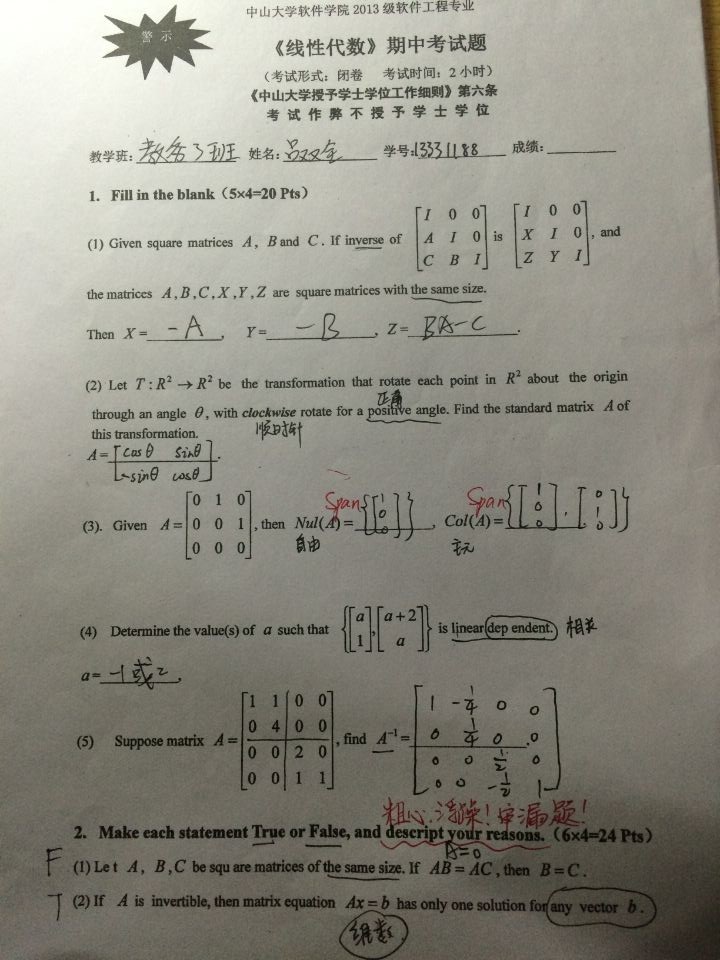 中山大学软件学院 2013 级软件工程专业
警 示
《线性代数》期中考试题
(考试形式: 闭卷 考试时间: 2 小时)
《中山大学授予学士学位工作细则》第六条
考 试 作 弊 不 授 予 学 士 学 位
教学班: 教务3班 姓名: 吕双全 学号: 13331188 成绩:
1. Fill in the blank (5×4=20 Pts)
(1) Given square matrices A, B and C. If inverse of [I 0 0; A I 0; C B I] is [I 0 0; X I 0; Z Y I], and
the matrices A,B,C,X,Y,Z are square matrices with the same size.
Then X= -A , Y= -B , Z= BA-C .
(2) Let T:R² → R² be the transformation that rotate each point in R² about the origin
正角
through an angle θ, with clockwise rotate for a positive angle. Find the standard matrix A of
顺时针
this transformation.
A= [cosθ sinθ; -sinθ cosθ].
Span Span
(3). Given A= [0 1 0; 0 0 1; 0 0 0], then Nul(A)= {[1; 0; 0]}, Col(A)= {[1; 0; 0], [0; 1; 0]}
自由 主元
(4) Determine the value(s) of a such that {[a; 1], [a+2; a]} is linear dep endent. 相关
a= -1或2 .
(5) Suppose matrix A= [1 1 0 0; 0 4 0 0; 0 0 2 0; 0 0 1 1], find A⁻¹= [1 -1/4 0 0; 0 1/4 0 0; 0 0 1/2 0; 0 0 -1/2 1]
粗心.浮燥!审漏题!
2. Make each statement True or False, and descript your reasons. (6x4=24 Pts)
A=0
F (1) Le t A, B,C be squ are matrices of the same size. If AB = AC, then B = C.
T (2) If A is invertible, then matrix equation Ax = b has only one solution for any vector b.
维数.